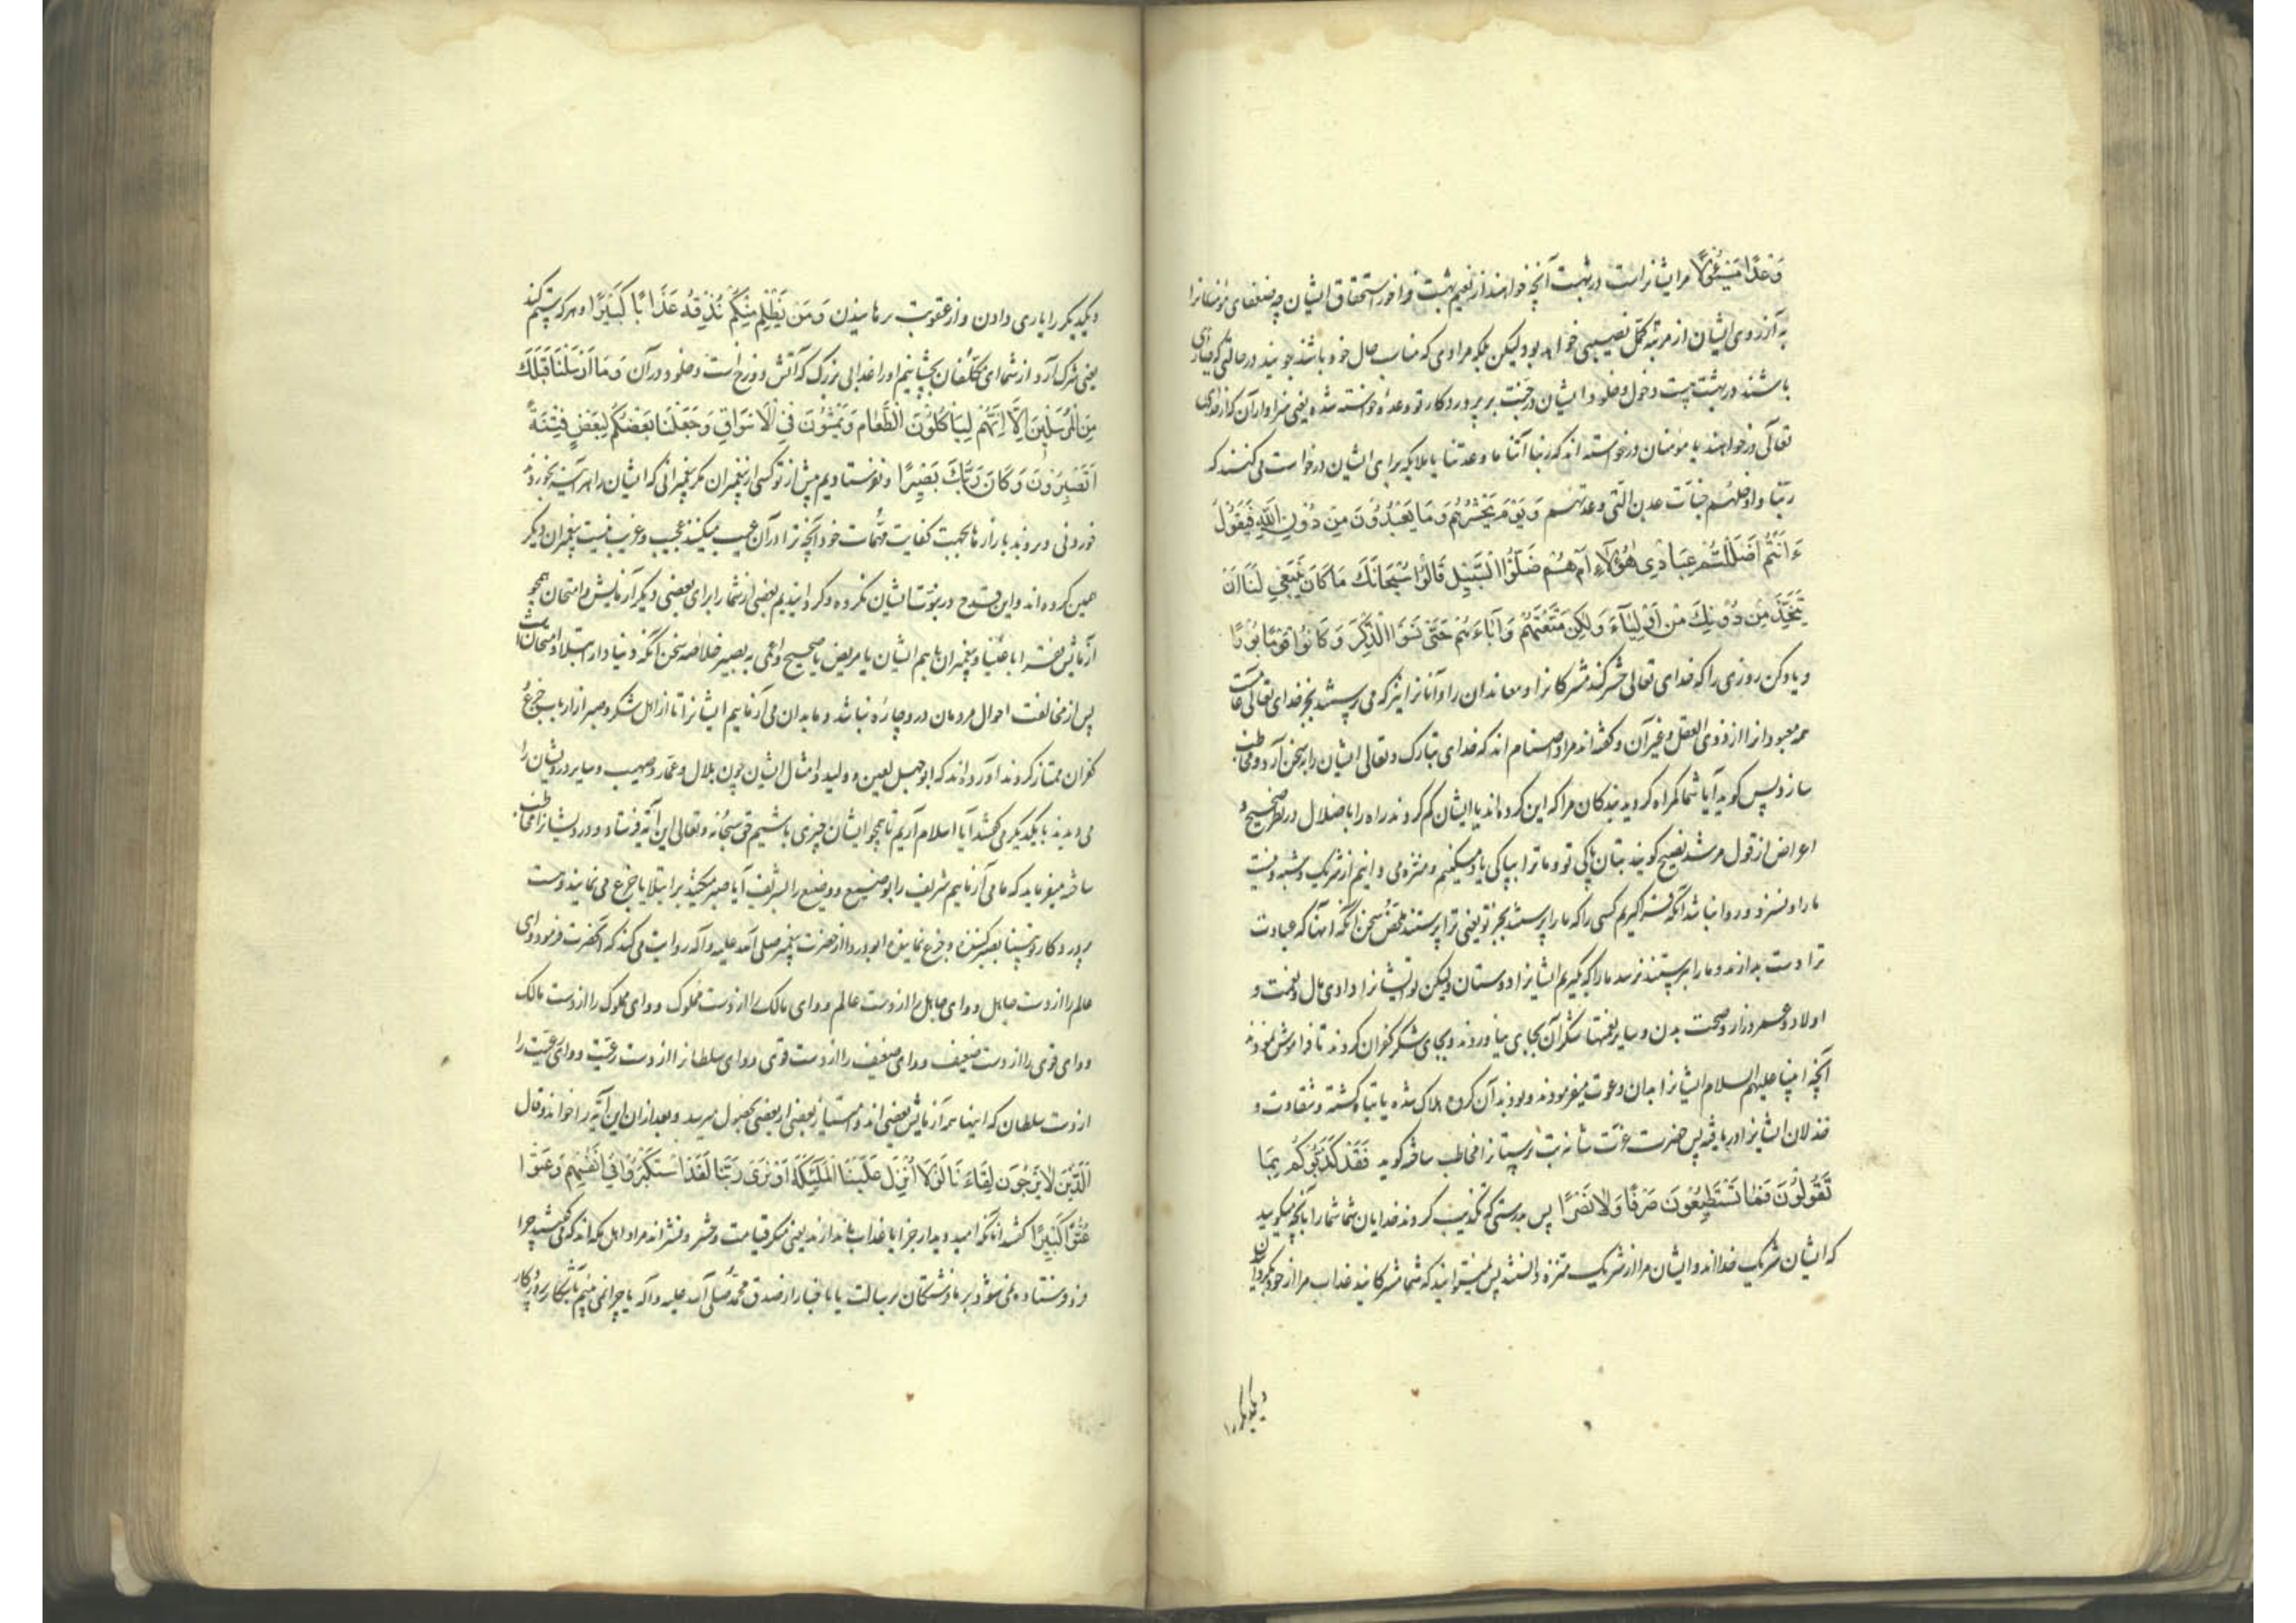 وَعْدًا مَسْئُولًا مر ایشانراست در بهشت آنچه خواهند از نعیم بهشت فراخور استحقاق ایشان چه ضعفای مؤمنانرا
به آرزوی ایشان از مرتبه کمل نصیبی خواهد بود ولیکن بلکه مرادی که مناسب حال خود باشند جویند در حالتی که
باشند در بهشت دخول و خلود ایشان در جنت بر پروردکار تو وعدۀ خواسته شده یعنی سزاوار آن که از خدای
تعالی درخواهند یا مؤمنان درخواسته اند که ربنا آتنا ما وعدتنا یا ملایکه برای ایشان درخواست می کنند که
ربنا وادخلهم جنات عدن التی وعدتهم وَيَوْمَ يَحْشُرُهُمْ وَمَا يَعْبُدُونَ مِنْ دُونِ اللَّهِ فَيَقُولُ
ءَاَنْتُمْ اَضْلَلْتُمْ عِبَادِي هٰؤُلَآءِ اَمْ هُمْ ضَلُّوا السَّبِيلَ قَالُوا سُبْحَانَكَ مَا كَانَ يَنْبَغِي لَنَا اَنْ
نَتَّخِذَ مِنْ دُونِكَ مِنْ اَوْلِيَآءَ وَلٰكِنْ مَتَّعْتَهُمْ وَآبَاءَهُمْ حَتَّى نَسُوا الذِّكْرَ وَكَانُوا قَوْمًا بُورًا
و یاد کن روزی را که خدای تعالی حشر کند مشرکانرا و معاندان را و آنانرا نیز که می پرستند بجز خدای تعالی
همه معبودانرا از ذوی العقل و غیر آن و کفته اند مراد اصنام اند که خدای تبارک و تعالی ایشان را بسخن آرد و مخاطب
سازد پس کوید آیا شما کمراه کردید بندکان مرا که این کروه اند یا ایشان کم کردند راه را با ضلال در نظر صحیح و
اعراض از قول مرشد نصیح کویند بتان پاکی تو و ما ترا بپاکی یاد میکنیم و منزه می دانیم از شریک و شبه و نیست
ما را و نسزد و روا نباشد آنکه فرا کیریم کسی را که ما را پرستند بجز تو یعنی ترا پرستند ملخص سخن آنکه آنها که عبادت
ترا دست بدارند و ما را پرستند نرسد ما را که بکیریم ایشانرا دوستان ولیکن تو ایشانرا دادی مال و نعمت و
اولاد و عمر دراز و صحت بدن و سایر نعمتها شکر آن بجای نیاوردند و بجای شکر کفران کردند تا فراموش نمودند
آنچه انبیا علیهم السلام ایشانرا بدان دعوت میفرمودند و بودند آن کروه هلاک شده یا تباه کشته و شقاوت و
خذلان ایشانرا دریافته پس حضرت عزت شانه بت پرستانرا مخاطب ساخته کوید فَقَدْ كَذَّبُوكُمْ بِمَا
تَقُولُونَ فَمَا تَسْتَطِيعُونَ صَرْفًا وَلَا نَصْرًا پس بدرستی که تکذیب کردند خدایان شما شما را بآنچه میکویید
که ایشان شریک خدااند و ایشان مرا از شریک منزه دانستند پس نمیتوانید که شما مشرکانید عذاب مرا از خود بکردانیدن
و یکدیکر را
و یکدیکر را یاری دادن و از عقوبت برهانیدن وَمَنْ يَظْلِمْ مِنْكُمْ نُذِقْهُ عَذَابًا كَبِيرًا و هر که ستم کند
یعنی شرک آرد از شما ای مکلفان بچشانیم او را عذابی بزرک که آتش دوزخ است و خلود در آن وَمَا اَرْسَلْنَا قَبْلَكَ
مِنَ الْمُرْسَلِينَ اِلَّا اِنَّهُمْ لَيَأْكُلُونَ الطَّعَامَ وَيَمْشُونَ فِي الْاَسْوَاقِ وَجَعَلْنَا بَعْضَكُمْ لِبَعْضٍ فِتْنَةً
اَتَصْبِرُونَ وَكَانَ رَبُّكَ بَصِيرًا و نفرستادیم پیش از تو کسی از پیغمبران مکر پیغمبرانی که ایشان هر آینه بخوردند
خوردنی و بروند ببازارها بجهت کفایت مهمات خود آنچه ترا در آن عیب میکنند عجیب و غریب نیست پیغمبران دیکر
همین کرده اند و این قدح در نبوت ایشان نکرده و کردانیدیم بعضی از شما را برای بعضی دیکر آزمایش و امتحان همچو
آزمایش فقرا باغنیا و پیغمبران با مم ایشان یا مریض یا صحیح و اعمی به بصیر خلاصه سخن آنکه دنیا دار ابتلا و امتحان است
پس از مخالفت احوال مردمان در و چاره نباشد و ما بدان می آزماییم ایشانرا تا از اهل شکر و صبر از ارباب جزع و
کفران ممتاز کردند آورده اند که ابو جهل لعین و ولید و امثال ایشان چون بلال و عمار و صهیب و سایر درویشان را
می دیدند با یکدیکر می کفتند آیا اسلام آریم تا همچو ایشان چیزی باشیم حق سبحانه و تعالی این آیه فرستاد و درویشانرا مخاطب
ساخته میفرماید که ما می آزماییم شریف را بوضیع و وضیع را بشریف آیا صبر میکنید بر ابتلا یا جزع می نمایید و هست
پروردکار تو بینا بصبر کننده و جزع نماینده ابو دردا از حضرت پیغمبر صلی الله علیه وآله روایت می کند که آنحضرت فرمود وای
عالم را از دست جاهل و وای جاهل را از دست عالم و وای مالک را از دست مملوک و وای مملوک را از دست مالک
و وای قوی را از دست ضعیف و وای ضعیف را از دست قوی و وای سلطانرا از دست رعیت و وای رعیت را
از دست سلطان که اینها همه آزمایش بعضی اند و امتیاز بعضی از بعضی بحصول میرسد و بعد از ان این آیه را خواند وقال
الَّذِينَ لَا يَرْجُونَ لِقَاءَنَا لَوْلَا اُنْزِلَ عَلَيْنَا الْمَلٰئِكَةُ اَوْ نَرَى رَبَّنَا لَقَدِ اسْتَكْبَرُوا فِي اَنْفُسِهِمْ وَعَتَوْا
عُتُوًّا كَبِيرًا کفتند آنانکه امید دیدار جزا یا عذاب ما ندارند یعنی منکر قیامت و حشر و نشراند مراد اهل مکه اند که می کفتند چرا
فرو فرستاده نمی شود بر ما فرشتکان برسالت یا باخبار از صدق محمد صلی الله علیه وآله یا چرا نمی بینیم آشکار پروردکار